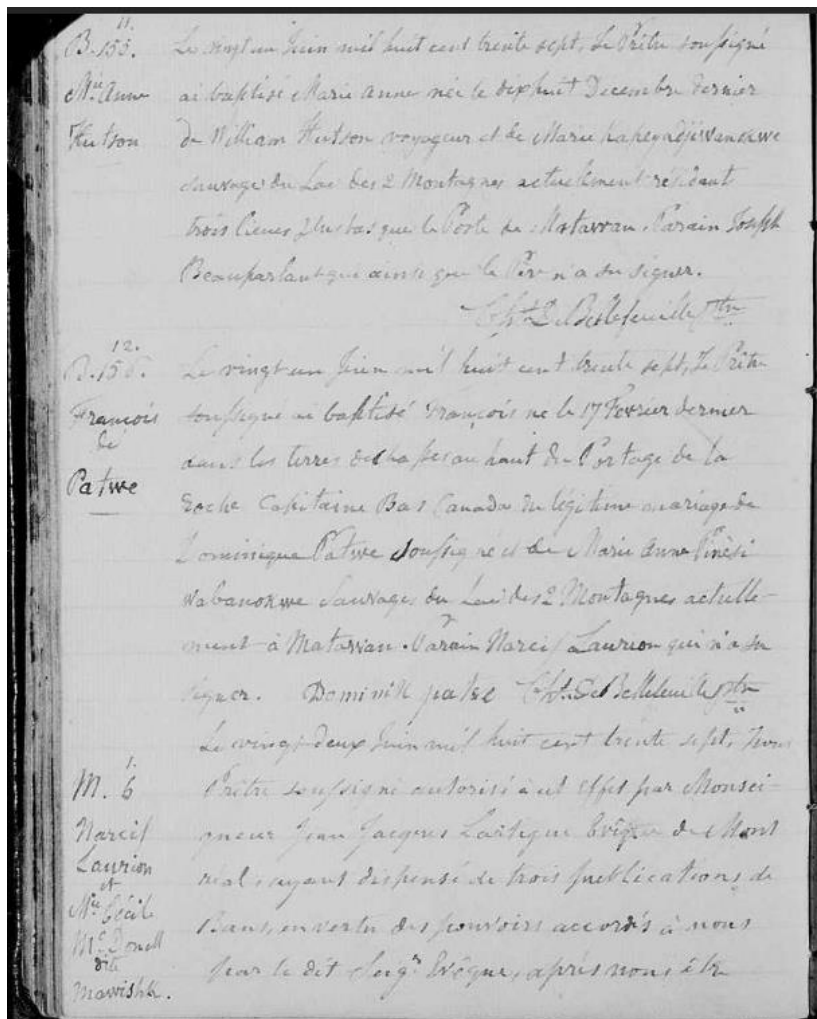 11.
B. 155.
Mie Anne
Hutson
Le vingt un Juin mil huit cent trente sept, Le Prêtre soussigné
ai baptisé Marie Anne née le dix huit Decembre dernier
de William Hutson voyageur et de Marie Kapeyadjiwanokwe
sauvage du Lac des 2 Montagnes actuellement résidant
trois lieues plus bas que le Poste de Matawan. Parain Joseph
Beauparlant qui ainsi que le Père n'a su signer.
Chs. De Bellefeuille Ptre
12.
B. 156.
François
de
Patwe
Le vingt un Juin mil huit cent trente sept, Le Prêtre
soussigné ai baptisé François né le 17 Fevrier dernier
dans les terres de chasses au haut du Portage de la
Roche Capitaine Bas Canada du légitime mariage de
Dominique Patwe soussigné et de Marie Anne Pinesi
wabanokwe Sauvages du Lac des 2 Montagnes actuelle-
ment à Matawan. Parain Narcis Laurion qui n'a su
signer. Dominik patwe Chs. De Bellefeuille Ptre
1.
M. 6
Narcis
Laurion
et
Mie Cécile
Mc Donell
dite
Mawishk.
Le vingt-deux Juin mil huit cent trente sept, Nous
Prêtre soussigné autorisé à cet effet par Monsei-
gneur Jean Jacques Lartigue Evêque de Mont
réal, ayant dispensé de trois publications de
Bans, en vertu des pouvoirs accordés à nous
par le dit Seigr. Evêque, après nous être